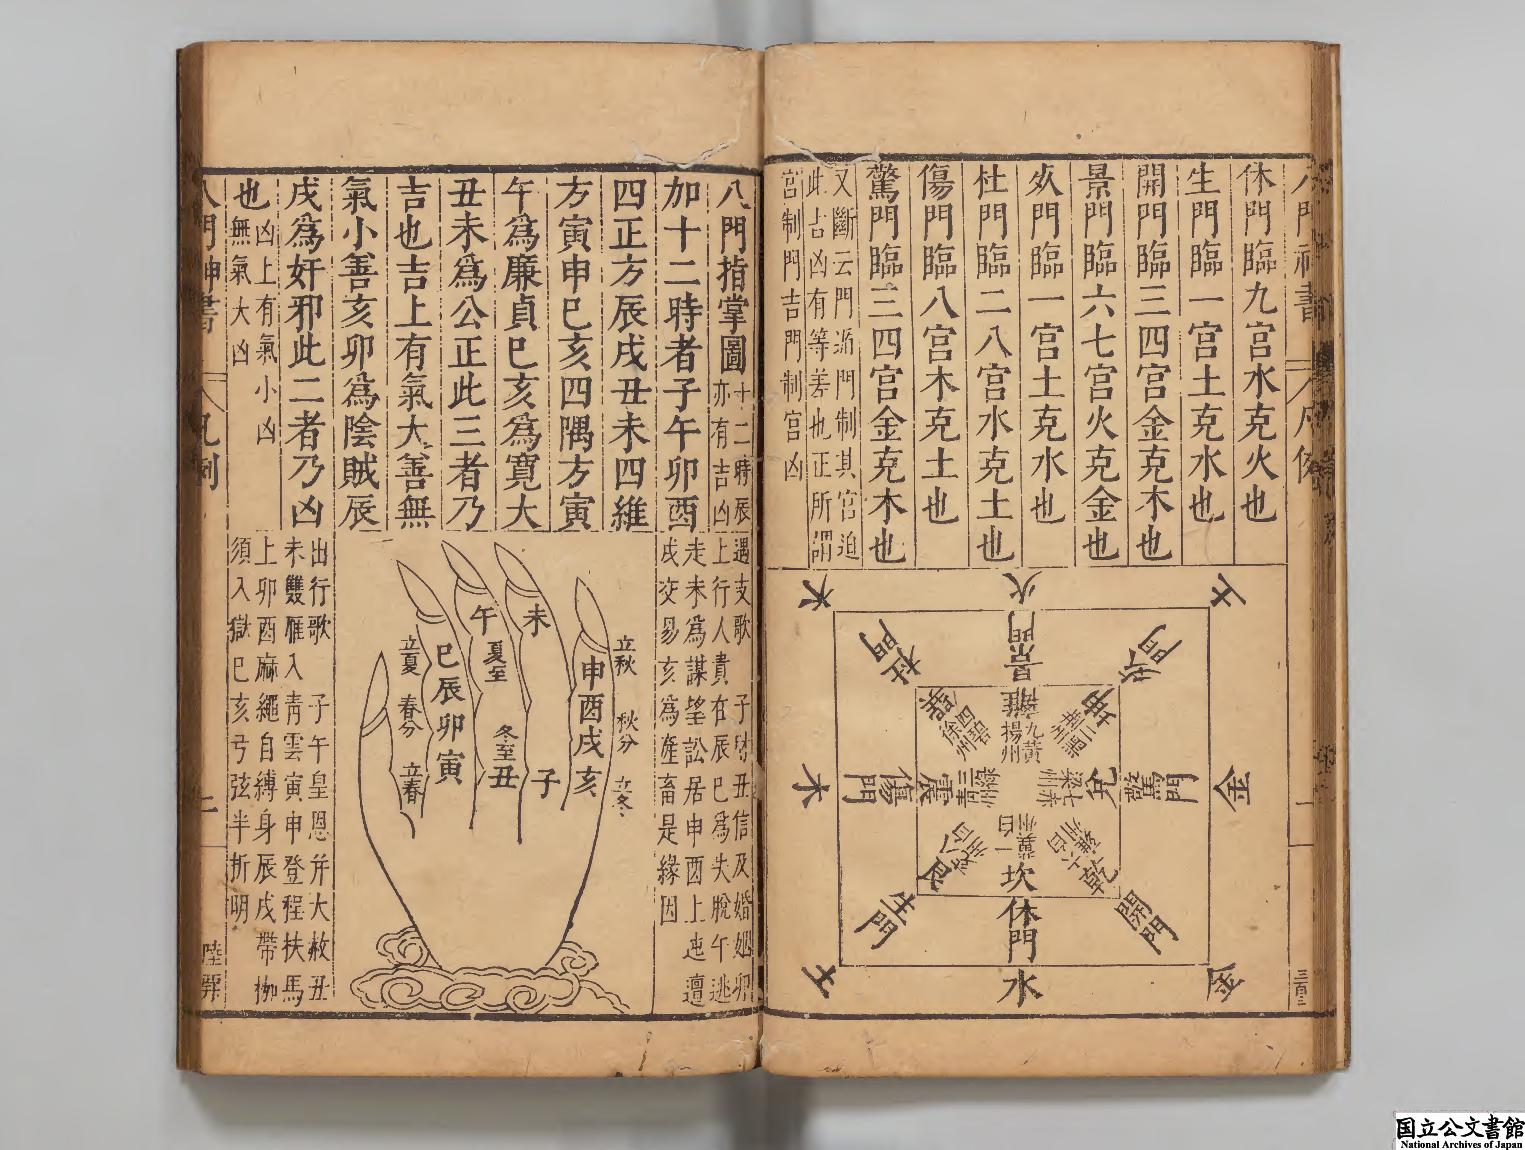 休門臨九宮水克火也
生門臨一宮土克水也
開門臨三四宮金克木也
景門臨六七宮火克金也
死門臨一宮土克水也
杜門臨二八宮木克土也
傷門臨八宮木克土也
驚門臨三四宮金克木也
又斷云門迫門制其宮迫
此吉凶有等差也正所謂
宮制門吉門制宮凶
火
土
金
金
水
土
木
木
景門
死門
驚門
開門
休門
生門
傷門
杜門
離
九黃
揚州
坤
二黑
荊州
兌
七赤
梁州
乾
六白
雍州
坎
一白
冀州
艮
八白
兗州
震
三綠
青州
巽
四碧
徐州
三百三
八門指掌圖
十二時辰
亦有吉凶
加十二時者子午卯酉
四正方辰戌丑未四維
方寅申巳亥四隅方寅
午為廉貞巳亥為寬大
丑未為公正此三者乃
吉也吉上有氣大善無
氣小善亥卯為陰賊辰
戌為奸邪此二者乃凶
也
凶上有氣小凶
無氣大凶
遇支歌 子時丑信及婚姻卯
上行人貴在辰巳為失脫午逃
走未為謀望訟居申酉上迍邅
戌交易亥為產畜是緣因
立秋
秋分
立冬
未
申酉戌亥
午
夏至
冬至
丑
子
巳辰卯寅
立夏
春分
立春
出行歌 子午皇恩并大赦丑
未雙雁入青雲寅申登程扶馬
上卯酉麻繩自縛身辰戌帶枷
須入獄巳亥弓弦半折明
八門神書
凡例
国立公文書館
National Archives of Japan